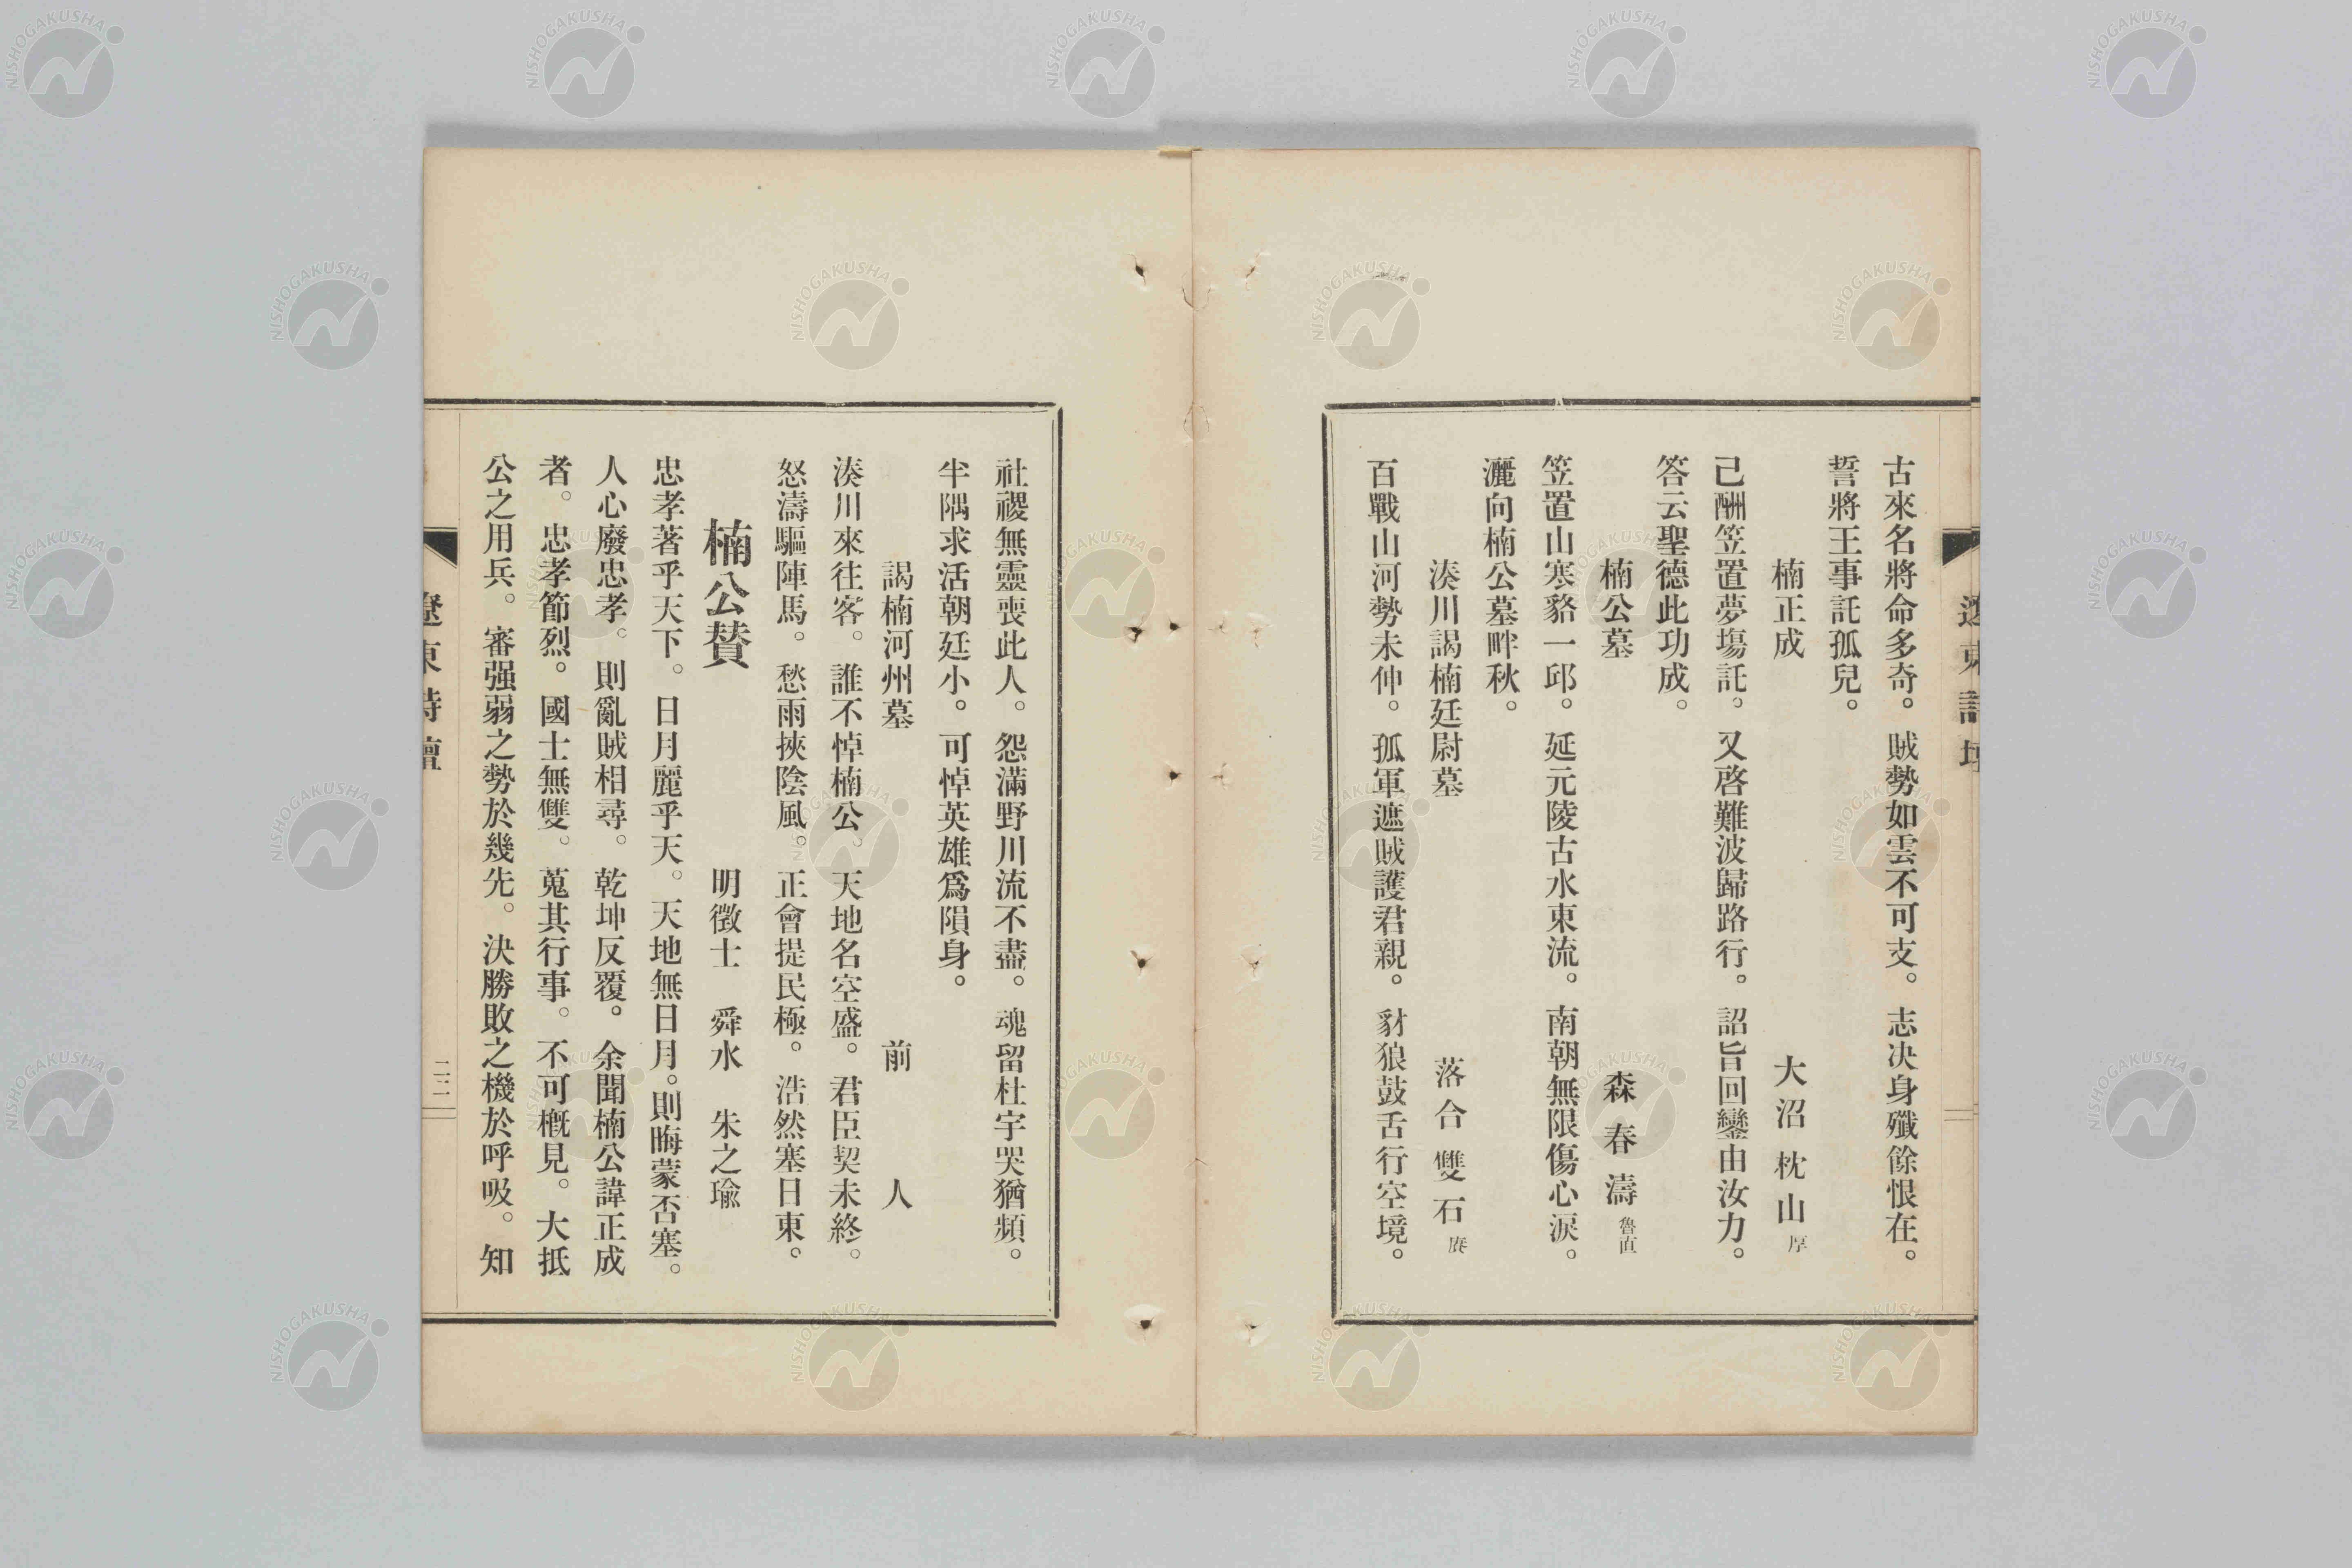 古來名將命多奇。賊勢如雲不可支。志决身殲餘恨在。
誓將王事託孤兒。
楠正成　大沼枕山 厚
己酬笠置夢塲託。又啓難波歸路行。詔旨回鑾由汝力。
答云聖德此功成。
楠公墓　森春濤 魯直
笠置山寒貉一邱。延元陵古水東流。南朝無限傷心淚。
灑向楠公墓畔秋。
湊川謁楠廷尉墓　落合雙石 賡
百戰山河勢未伸。孤軍遮賊護君親。豺狼鼓舌行空境。
社稷無靈喪此人。怨滿野川流不盡。魂留杜宇哭猶頻。
半隅求活朝廷小。可悼英雄爲隕身。
謁楠河州墓　前人
湊川來往客。誰不悼楠公。天地名空盛。君臣契未終。
怒濤驅陣馬。愁雨挾陰風。正會提民極。浩然塞日東。
楠公賛　明徵士　舜水　朱之瑜
忠孝著乎天下。日月麗乎天。天地無日月。則晦蒙否塞。
人心廢忠孝。則亂賊相尋。乾坤反覆。余聞楠公諱正成
者。忠孝節烈。國士無雙。蒐其行事。不可槪見。大抵
公之用兵。審强弱之勢於幾先。決勝敗之機於呼吸。知
遼東詩壇
二二
NISHOGAKUSHA